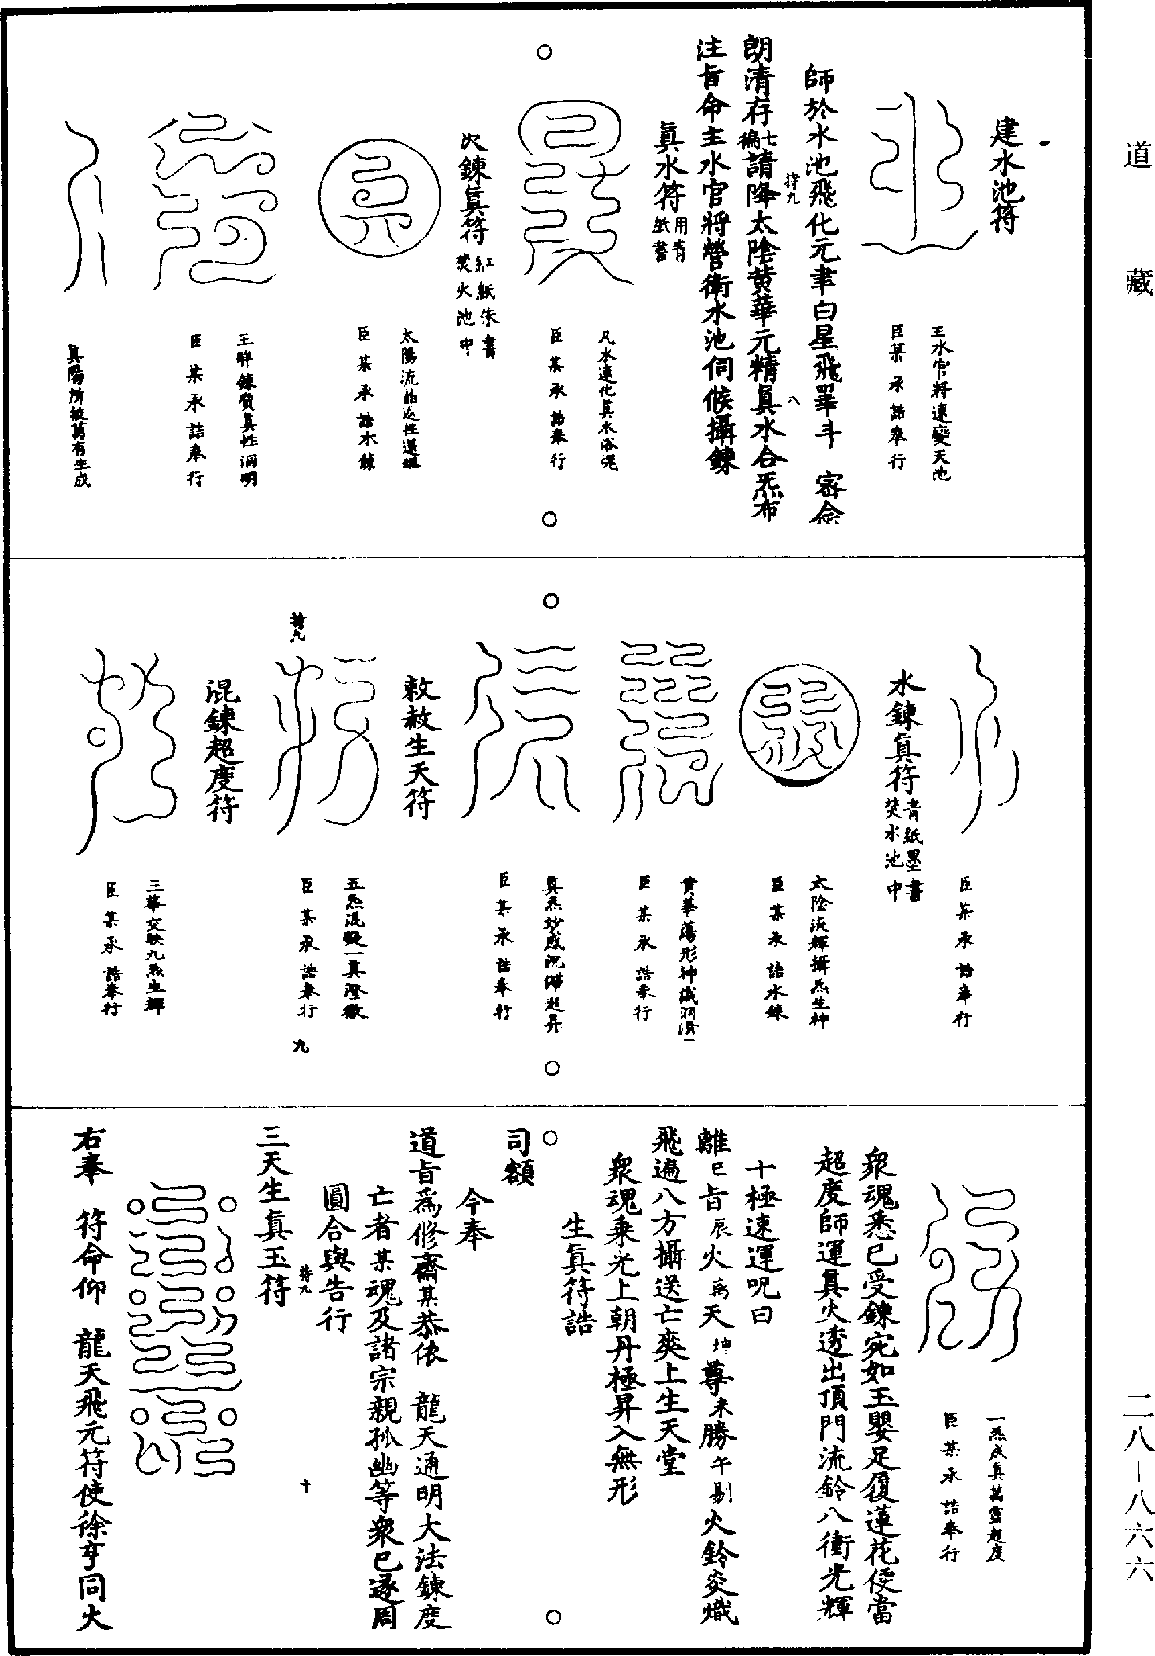 道藏
建水池符
王水官將速變天池
臣某承誥奉行
師於水池飛化元聿白星飛罼斗　密念
朗清存七徧請降太陰黄華元精真水合炁布
注旨命主水官將營衛水池伺候攝鍊
真水符用青紙書
凡水速化真水浴魂
臣某承誥奉行
火鍊真符紅紙朱書焚火池中
太陽流
臣某承誥火鍊
鍊質真性洞明
臣某承誥奉行
真陽所被萬有生成
臣某承誥奉行
水鍊真符青紙墨書焚水池中
太陰流輝攝炁生神
臣某承誥水鍊
黄華蕩形神
臣某承誥奉行
真炁妙成沉滯超昇
臣某承誥奉行
敕赦生天符
五炁混凝一真澄徹
臣某承誥奉行
九
混鍊超度符
三華交映九炁生輝
臣某承誥奉行
一炁成真萬靈超度
臣某承誥奉行
衆魂悉已受鍊宛如玉嬰足履蓮花便當
超度師運真火透出頂門流鈴八衝光輝
十極速運呪曰
離巳旨辰火萬天坤尊未勝午剔火鈴交熾
飛遍八方攝送亡爽上生天堂
衆魂乘光上朝丹極昇入無形
生真符誥
司額
今奉
道旨爲修齋某恭依　龍天通明大法鍊度
亡者某魂及諸宗親孤幽等衆已遂周
圓合與告行
三天生真玉符
十
右奉　符命仰　龍天飛元符使徐亨同火
二八—八六六